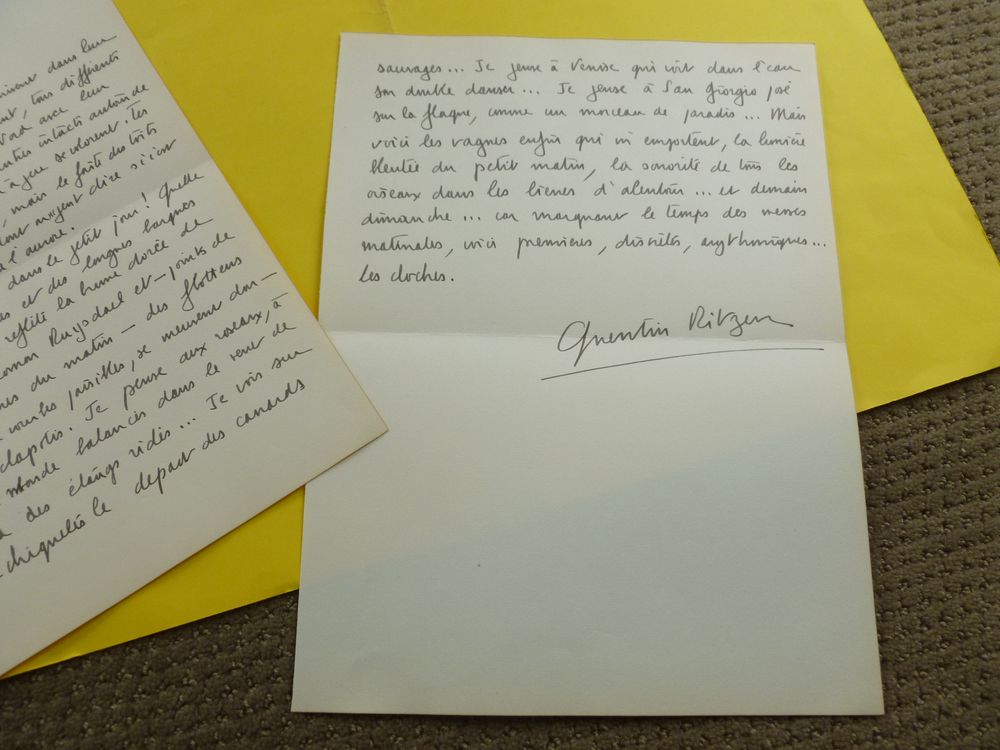 dans leur
tous différents
avec leur
intacts autour de
se colorent. Tes
mais le faîte des toits
dire si c'est
l'aurore.
dans le petit jour ! Quelle
et des longues barques
reflète la brume dorée de
Ruysdael et — joints de
du matin — des flottens
paisibles, se meuvent dou-
clapotis. Je pense aux roseaux, à
monde balancés dans le vent de
des étangs ridés... Je vois sur
déchiquetés le départ des canards
sauvages... Je pense à Venise qui voit dans l'eau
son double danser... Je pense à San Giorgio posé
sur la flaque, comme un morceau de paradis... Mais
voici les vagues enfin qui m'emportent, la lumière
bleutée du petit matin, la sonorité de tous les
oiseaux dans les lierres d'alentour... et demain
dimanche... car marquant le temps des messes
matinales, voici premières, discrètes, arythmiques...
les cloches.
Quentin Ritzen